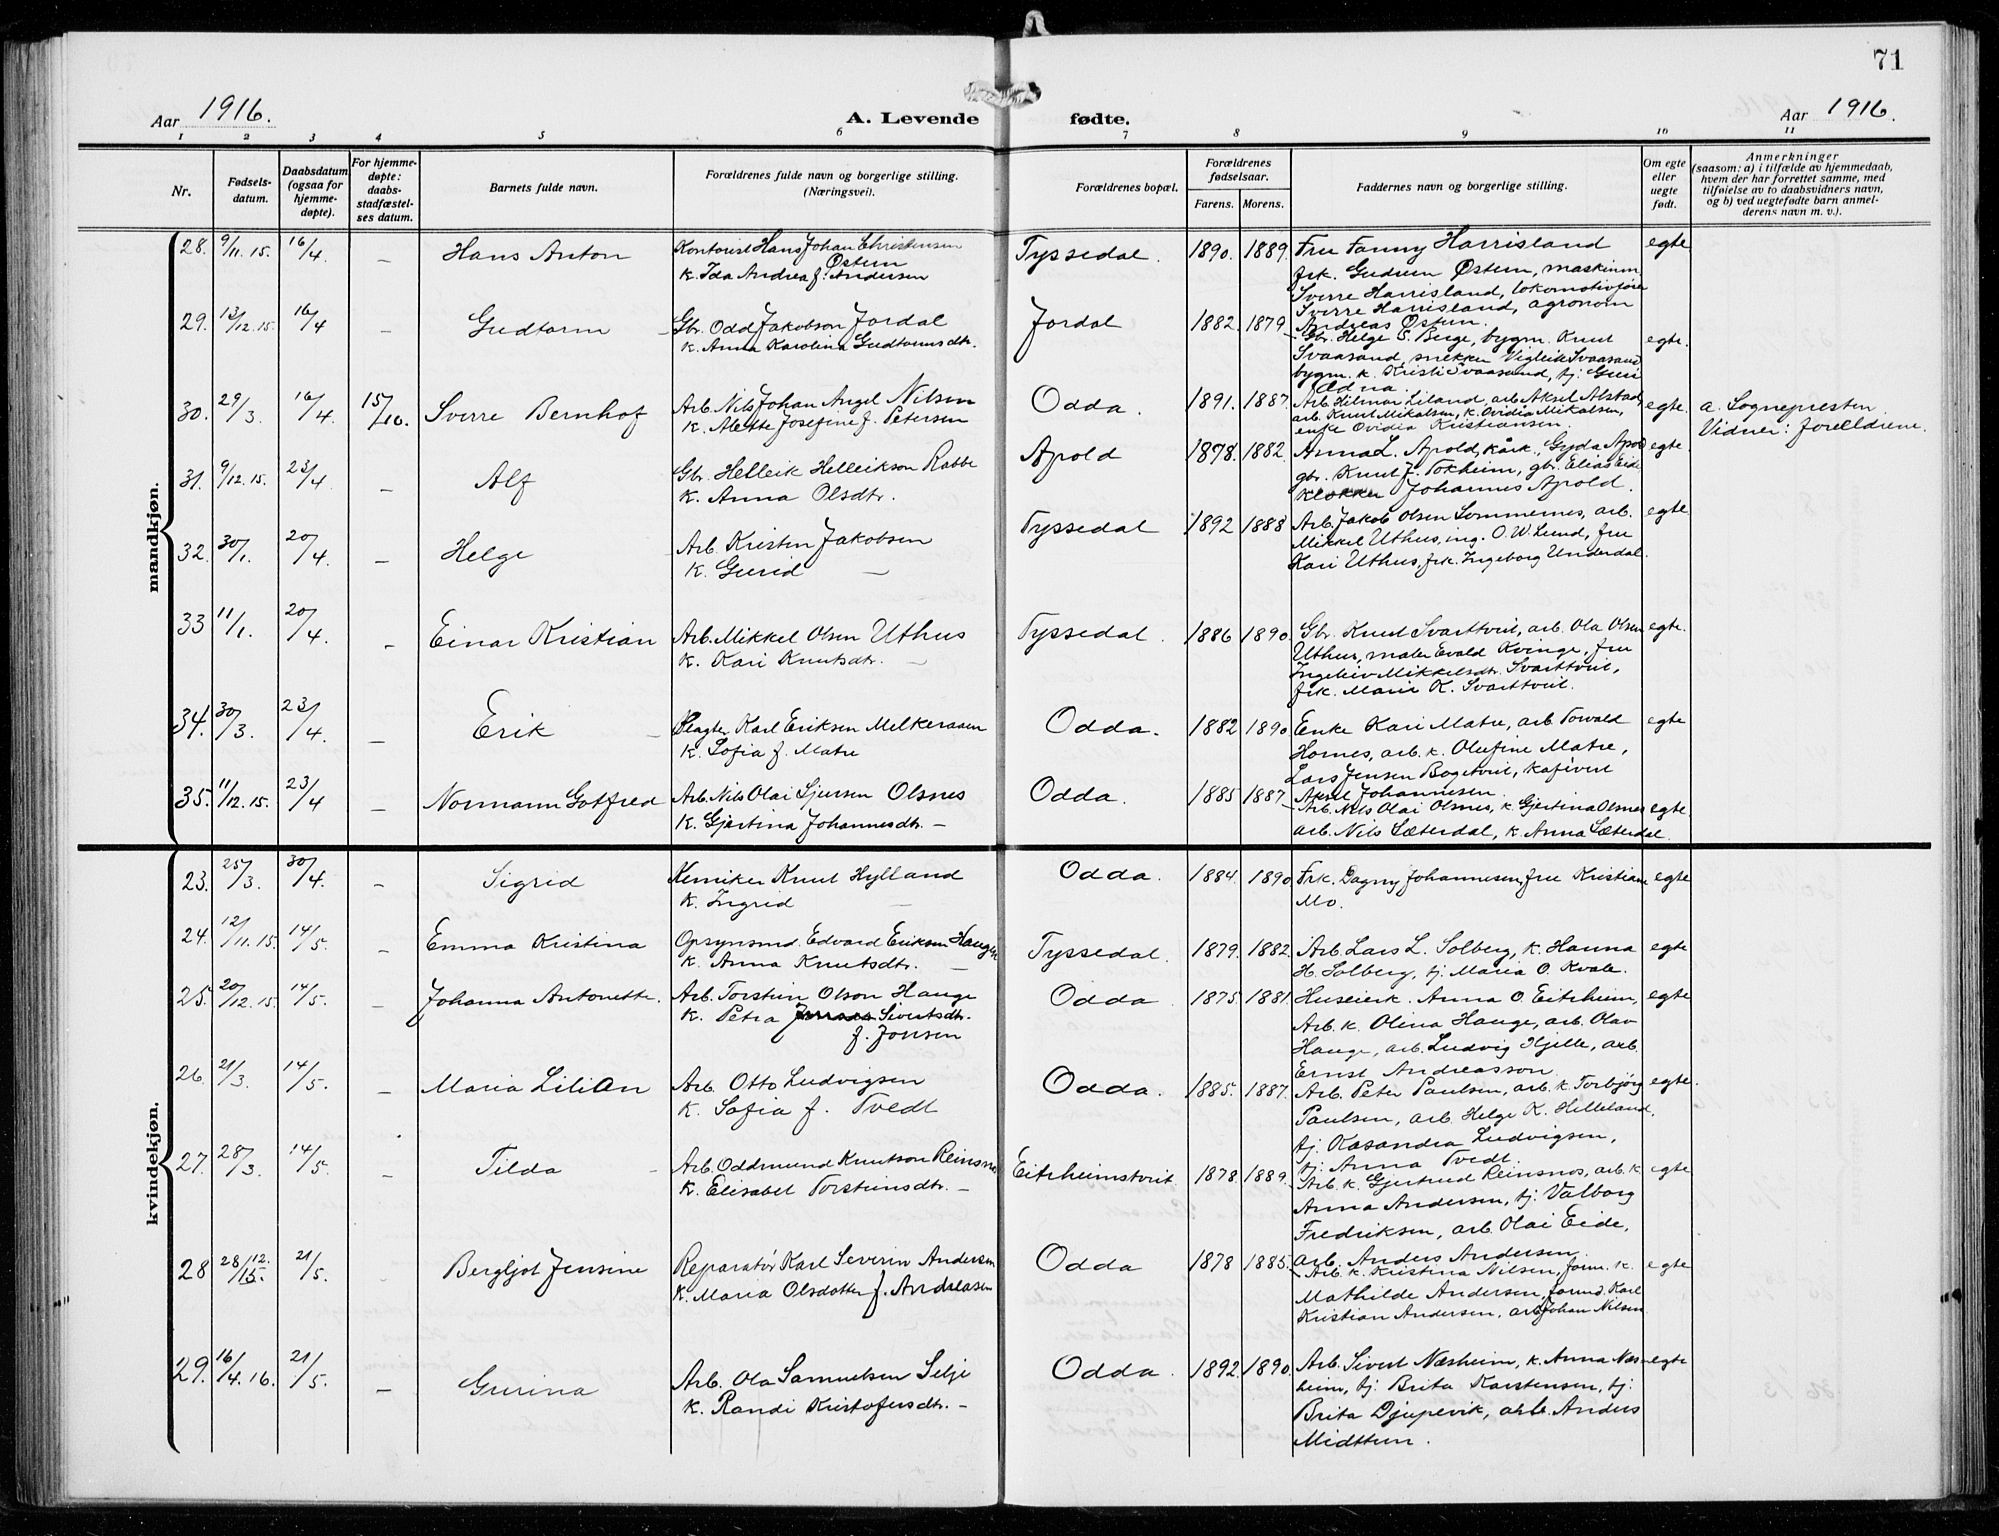 71
Aar 1916. A. Levende fødte. Aar 1916.
1 2 3 4 5 6 7 8 9 10 11
Nr.
Fødsels-
datum.
Daabsdatum
(ogsaa for
hjemme-
døpte).
For hjemme-
døpte:
daabs-
stadfæstel-
ses datum.
Barnets fulde navn.
Forældrenes fulde navn og borgerlige stilling.
(Næringsvei).
Forældrenes bopæl.
Forældrenes
fødselsaar.
Farens. Morens.
Faddernes navn og borgerlige stilling.
Om egte
eller
uegte
født.
Anmerkninger
(saasom: a) i tilfælde av hjemmedaab,
hvem der har forrettet samme, med
tilføielse av to daabsvidners navn,
og b) ved uegtefødte barn anmel-
derens navn m. v.).
mandkjøn.
28. 9/11. 15. 16/4 – Hans Anton
Kontorist Hans Johan Christensen
Østem
k. Ida Andrea f. Andersen
Tyssedal. 1890. 1889.
Fru Fanny Harrisland
frk. Gudrun Østem, maskinm.
Sverre Harrisland, lokomotivfører
Sverre Harrisland, agronom
Andreas Østem.
egte
29. 13/12. 15. 16/4 – Gudtorm
Gbr. Odd Jakobson Jordal
k. Anna Karolina Gudtormsdtr.
Jordal 1882. 1879
Gbr. Helge S. Berge, bygm. Knut
Svaasand, snekker Vigleik Svaasand
bygm. k. Kristi Svaasand, tj. Guri
Ædna.
egte.
30. 29/3. 16/4. 15/10. Sverre Bernhof
Arb. Nils Johan Angel Nilsen
k. Alette Josefine f. Petersen
Odda. 1891. 1887.
Arb. Hilmar Liland, arb. Aksel Alstad,
arb. Knut Mikalsen, k. Ovidia Mikalsen,
enke Ovidia Kristiansen.
egte.
a. Sognepresten.
Vidner: forældrene.
31. 9/12. 15. 23/4. – Alf
Gbr. Helleik Helleikson Rabbe
k. Anna Olsdtr.
Apold 1878. 1882.
Anna L. Apold, kårk., Gyda Apold
gbr. Knut J. Tokheim, gbr. Elias Eide
klokker Johannes Apold.
egte.
32. 30/1. 20/4. – Helge
Arb. Kristen Jakobsen
k. Gurid –
Tyssedal 1892 1888
Arb. Jakob Olsen Sommernes, arb.
Mikkel Uthus, ing. O. W. Lund, fru
Kari Uthus, frk. Ingeborg Underdal.
egte.
33 11/1. 20/4. – Einar Kristian
Arb. Mikkel Olsen Uthus
k. Kari Knutsdtr. –
Tyssedal. 1886 1890.
Gbr. Knut Svarttveit, arb. Ola Olsen
Uthus, maler Evald Kvinge, fru
Ingeleiv Mikkelsdtr. Svarttveit,
frk. Marie K. Svarttveit.
egte.
34. 30/3. 23/4. – Erik
Slagter Karl Eriksen Melkeraaen
k. Sofia f. Matre
Odda. 1882 1890
Enke Kari Matre, arb. Torvald
Hornes, arb. k. Olufine Matre,
Lars Jensen Bogetveit, kafévert
Aksel Johannesen.
egte
35. 11/12. 15. 23/4 – Normann Gotfred
Arb. Nils Olai Sjursen Olsnes
k. Gjertina Johannesdtr. –
Odda. 1885 1887
Arb. Nils Olai Olsnes, k. Gjertina Olsnes
arb. Nils Sæterdal, k. Anna Sæterdal.
egte
kvindekjøn.
23. 25/3. 30/4. – Sigrid
Kemiker Knut Hylland
k. Ingrid –
Odda. 1884. 1890
Frk. Dagny Johannesen, fru Kristiane
Mo.
egte
24. 12/11. 15. 14/5. – Emma Kristina
Opsynsmd. Edvard Eriksen Haugen
k. Anna Knutsdtr. –
Tyssedal. 1879. 1882.
Arb. Lars L. Solberg, k. Hanna
H. Solberg, tj. Maria O. Kvale.
egte
25. 20/12. 15. 14/5. – Johanna Antonette.
Arb. Torstein Olson Hauge
k. Petra Sivertsdtr.
f. Jonsen
Odda. 1875. 1881.
Huseierk. Anna O. Eitrheim,
Arb. k. Olina Hauge, arb. Olav
Hauge, arb. Ludvig Hjelle, arb.
Ernst Andreasson.
egte
26. 21/3. 14/5. – Maria Lilian
Arb. Otto Ludvigsen
k. Sofia f. Tvedt
Odda. 1885. 1887.
Arb. Peter Paulsen, arb. k. Torbjørg
Paulsen, arb. Helge K. Helleland,
tj. Kasandra Ludvigsen,
tj. Anna Tvedt.
egte.
27. 28/3. 14/5. – Tilda –
Arb. Oddmund Knutson Reinsnos
k. Elisabet Torsteinsdtr. –
Eitrheimstveit. 1878. 1889.
Arb. k. Gjertrud Reinsnos, arb. k.
Anna Andersen, tj. Valborg
Fredriksen, arb. Olai Eide,
arb. Anders Andersen.
egte
28 28/12. 15. 21/5. Bergljot Jensine
Reparatør Karl Severin Andersen
k. Maria Olsdotter f. Andreasen
Odda 1878 1885.
Arb. k. Kristina Nilsen, form. k.
Mathilde Andersen, formd. Karl
Kristian Andersen, arb. Johan Nilsen
egte
29. 16/4. 16. 21/5. – Gurina
Arb. Ola Samuelsen Selje
k. Randi Kristofersdtr. –
Odda. 1892. 1890.
Arb. Sivert Næsheim, k. Anna Næs-
heim, tj. Brita Karstensen, tj.
Brita Djupevik, arb. Anders
Midttun.
egte